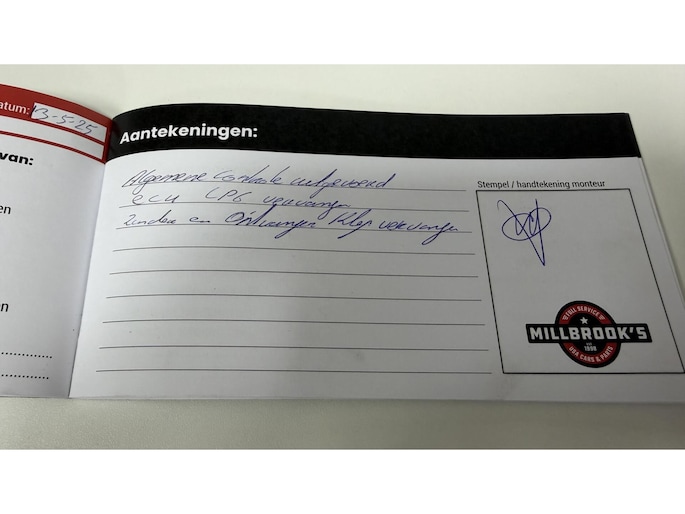 atum: 13-5-25
van:
en
en
Aantekeningen:
Algemene Controle uitgevoerd
ecu LPG vervangen
Zender en Ontvanger Klep vervangen
Stempel / handtekening monteur
FULL SERVICE
MILLBROOK'S
EST 1998
USA CARS & PARTS